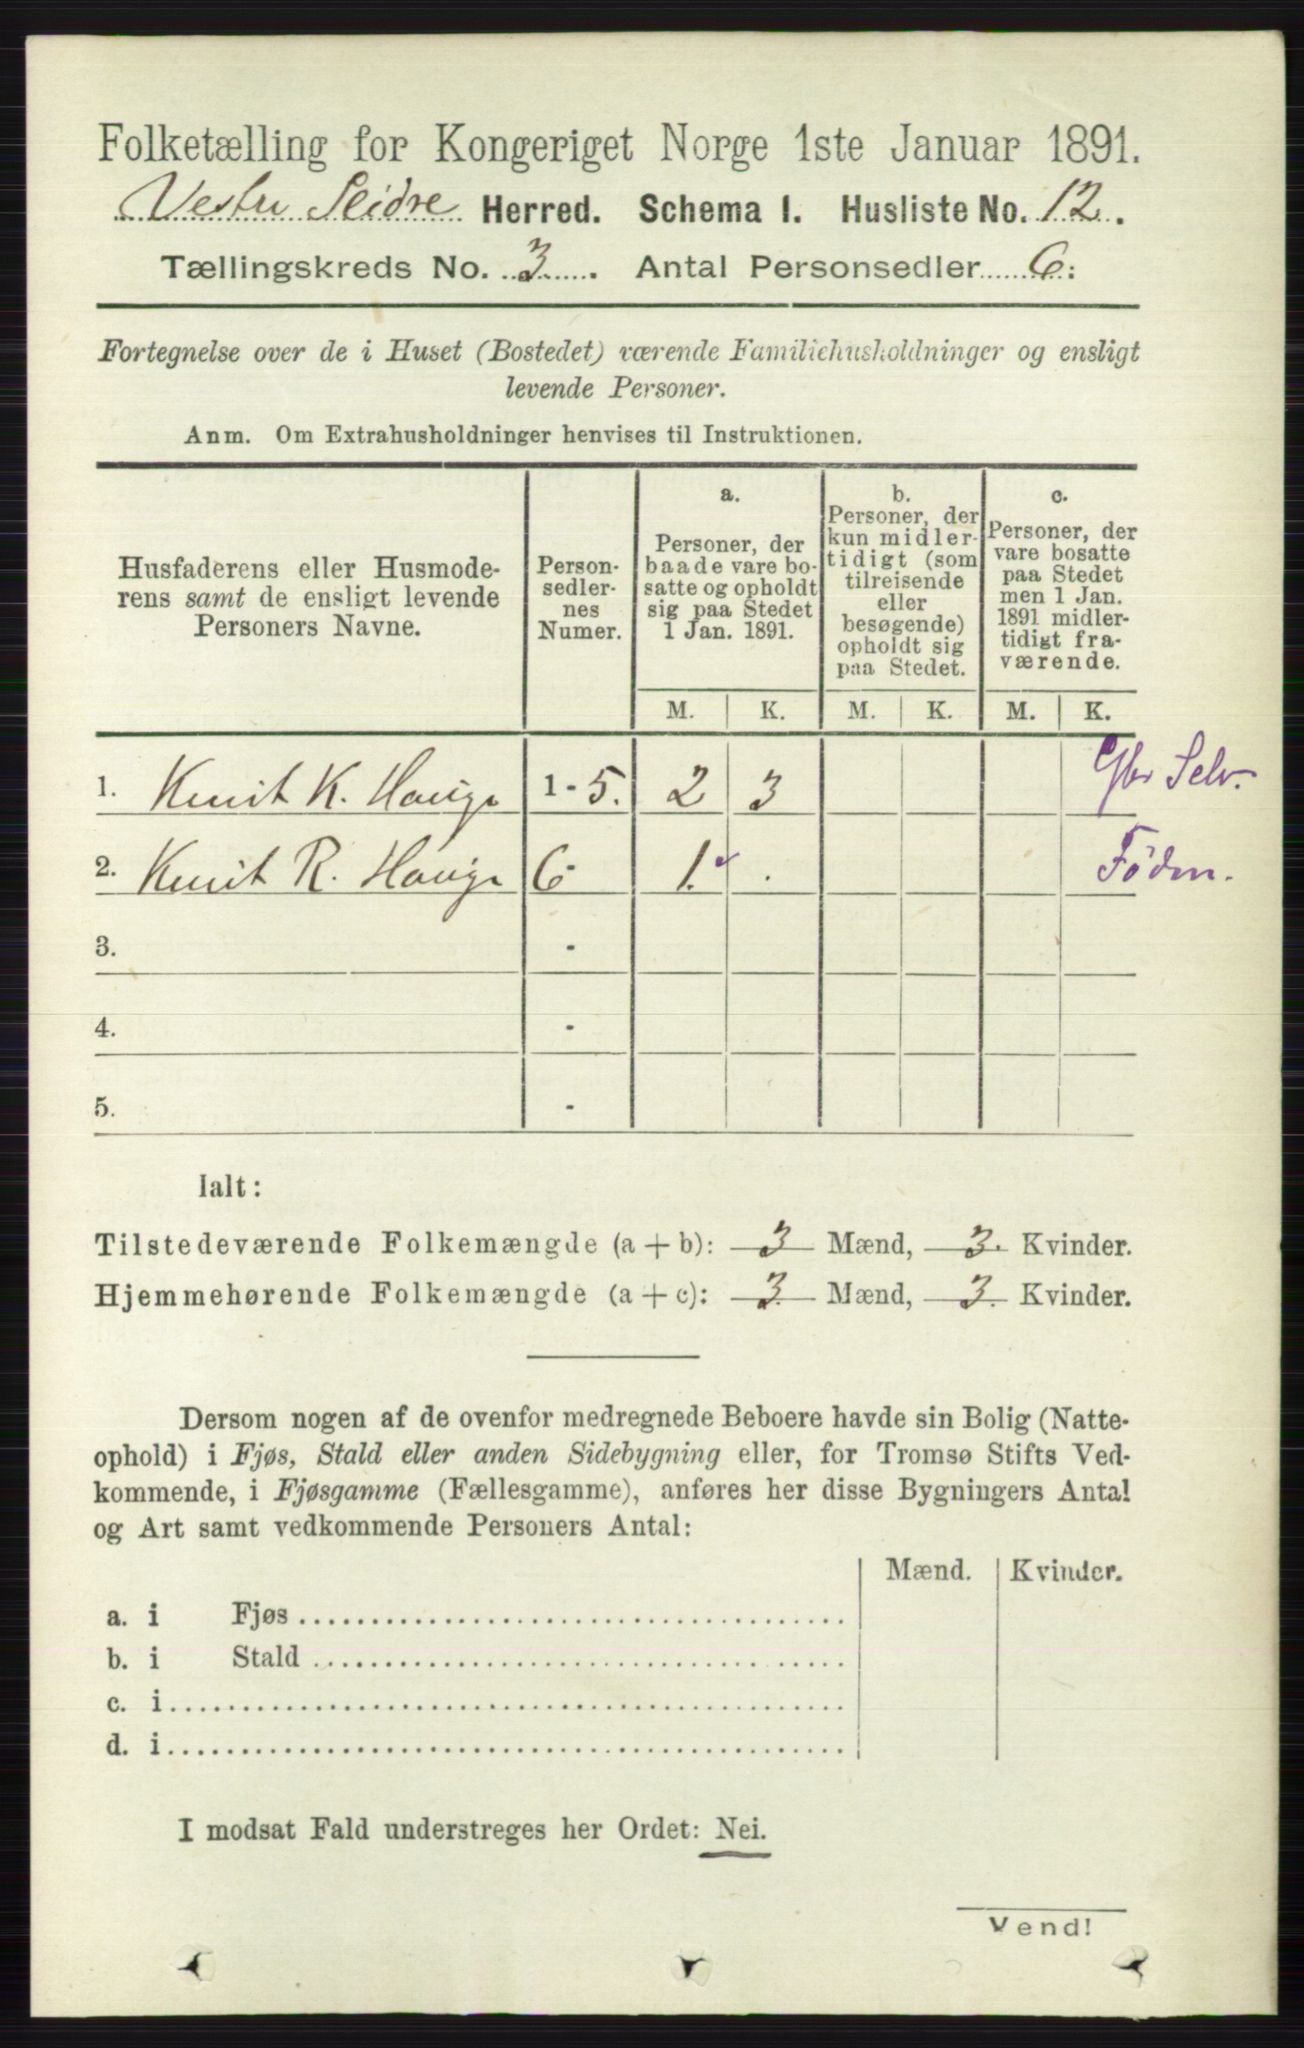 Folketælling for Kongeriget Norge 1ste Januar 1891.
Vestre Slidre Herred. Schema I. Husliste No. 12.
Tællingskreds No. 3. Antal Personsedler 6:
Fortegnelse over de i Huset (Bostedet) værende Familiehusholdninger og ensligt
levende Personer.
Anm. Om Extrahusholdninger henvises til Instruktionen.
Husfaderens eller Husmode-
rens samt de ensligt levende
Personers Navne.
Person-
sedler-
nes
Numer.
a.
Personer, der
baade vare bo-
satte og opholdt
sig paa Stedet
1 Jan. 1891.
b.
Personer, der
kun midler-
tidigt (som
tilreisende
eller
besøgende)
opholdt sig
paa Stedet.
c.
Personer, der
vare bosatte
paa Stedet
men 1 Jan.
1891 midler-
tidigt fra-
værende.
M. K. M. K. M. K.
1. Knut K. Hauge 1-5. 2 3 Selv.
2. Knut R. Hauge 6- 1. . Föder.
3. -
4. -
5. -
Ialt:
Tilstedeværende Folkemængde (a + b): 3 Mænd, 3. Kvinder.
Hjemmehørende Folkemængde (a + c): 3. Mænd, 3. Kvinder.
Dersom nogen af de ovenfor medregnede Beboere havde sin Bolig (Natte-
ophold) i Fjøs, Stald eller anden Sidebygning eller, for Tromsø Stifts Ved-
kommende, i Fjøsgamme (Fællesgamme), anføres her disse Bygningers Antal
og Art samt vedkommende Personers Antal:
Mænd. Kvinder.
a. i Fjøs
b. i Stald
c. i
d. i
I modsat Fald understreges her Ordet: Nei.
Vend!